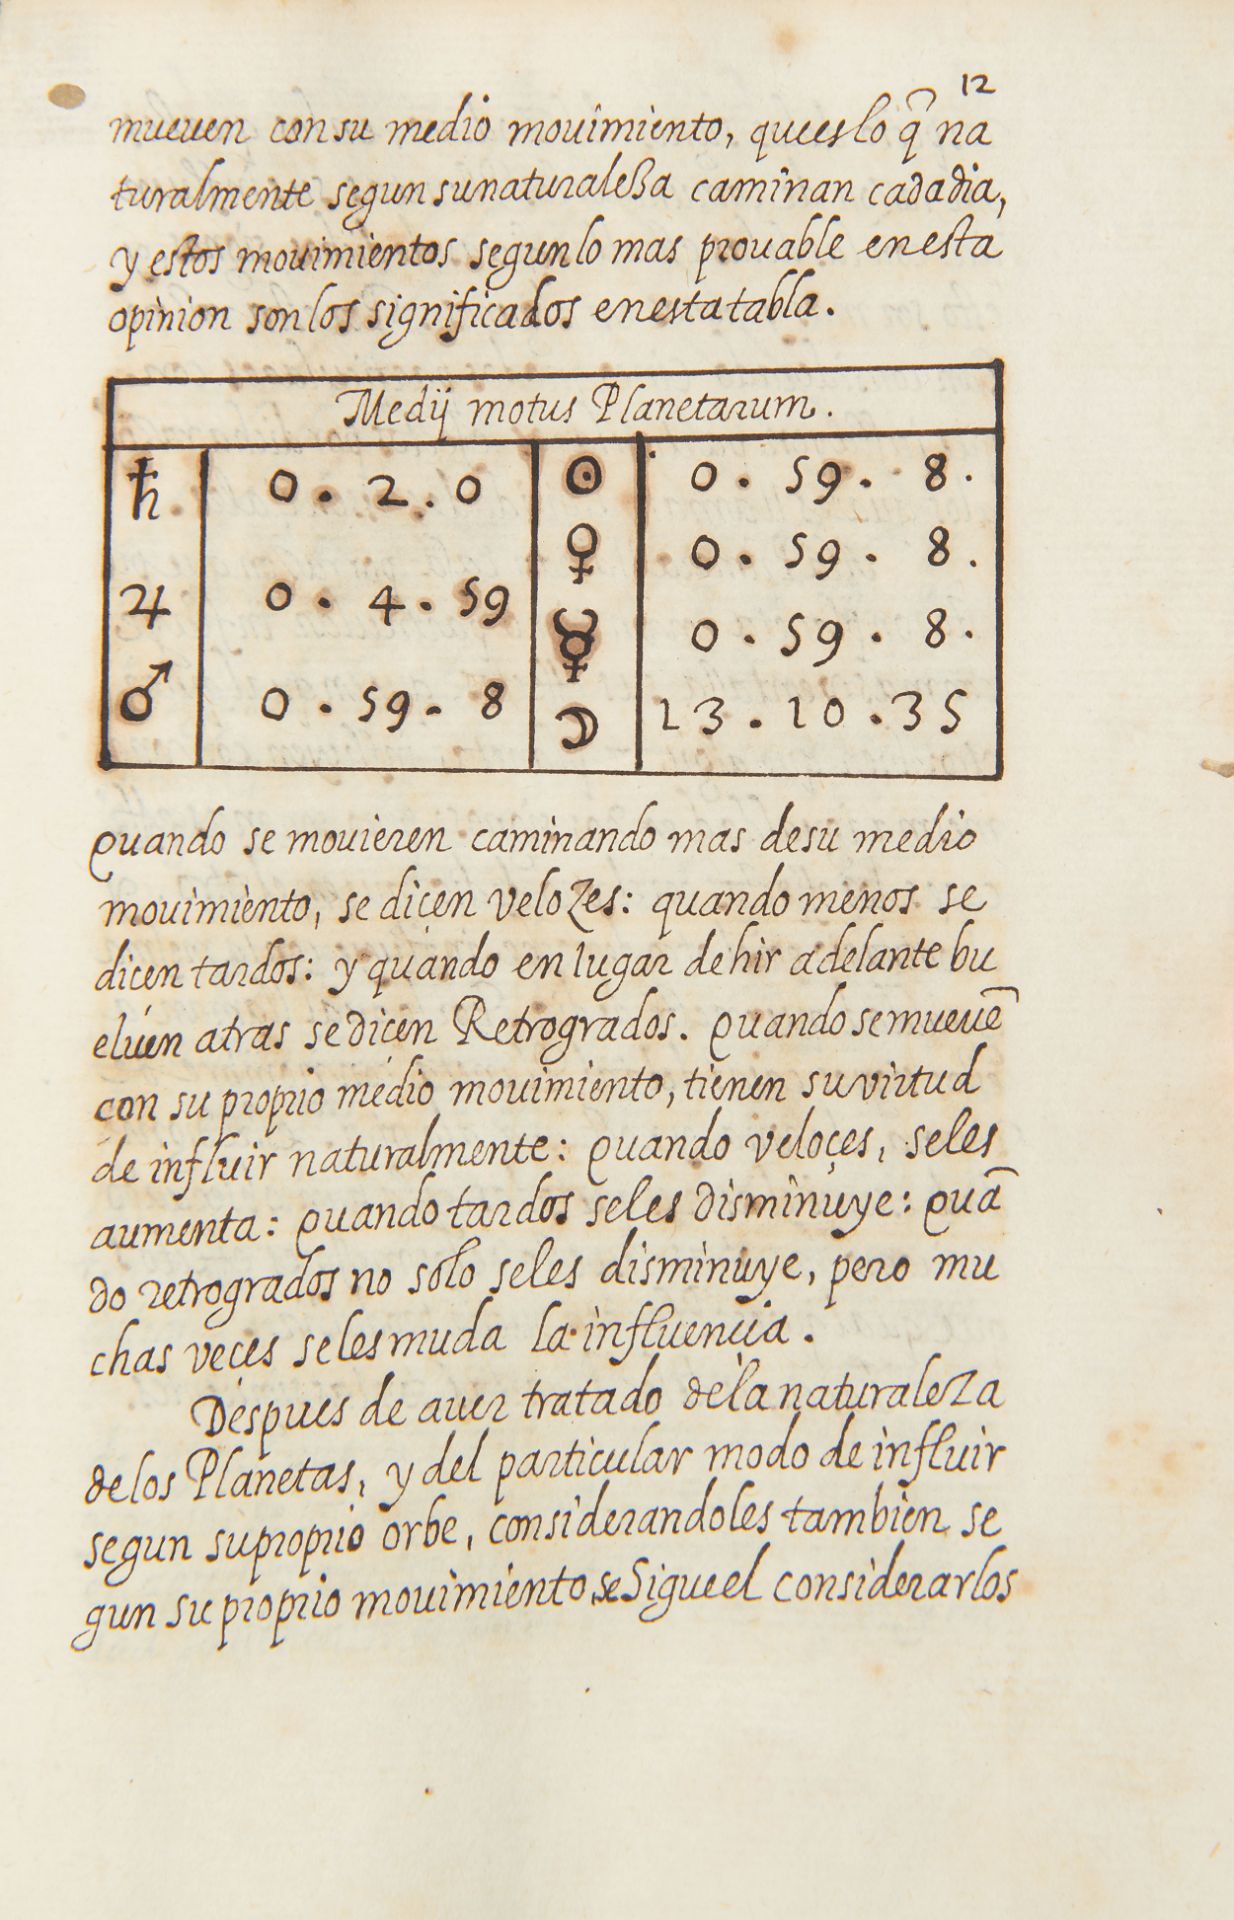 12
mueuen con su medio mouimiento, que es lo q̃ na
turalmente segun su naturaleßa caminan cada dia,
y estos mouimientos segun lo mas prouable en esta
opinion son los significados en esta tabla.
Medij motus Planetarum.
♄ 0. 2. 0 ☉ 0. 59. 8.
♀ 0. 59. 8.
♃ 0. 4. 59 ☿ 0. 59. 8.
♂ 0. 59. 8 ☽ 13. 10. 35
quando se mouieren caminando mas de su medio
mouimiento, se diçen velozes: quando menos se
dicen tardos: y quando en lugar de hir adelante bu
eluen atras se dicen Retrogrados. quando se mueuẽ
con su proprio medio mouimiento, tienen su virtud
de influir naturalmente: quando veloçes, se les
aumenta: quando tardos se les disminuye: quã
do retrogrados no solo se les disminuye, pero mu
chas veçes se les muda la influençia.
Despues de auer tratado de la naturaleza
de los Planetas, y del particular modo de influir
segun su proprio orbe, considerandoles tambien se
gun su proprio mouimiento, se Sigue el considerarlos